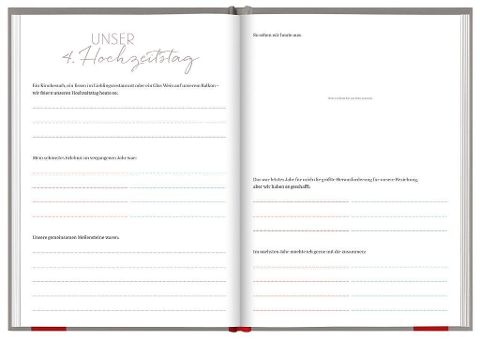 UNSER
4. Hochzeitstag
Ein Kinobesuch, ein Essen im Lieblingsrestaurant oder ein Glas Wein auf unserem Balkon –
wir feiern unseren Hochzeitstag heute so:
Mein schönstes Erlebnis im vergangenen Jahr war:
Unsere gemeinsamen Meilensteine waren:
So sehen wir heute aus:
Das war letztes Jahr für mich die größte Herausforderung für unsere Beziehung,
aber wir haben es geschafft:
Im nächsten Jahr möchte ich gerne mit dir zusammen: